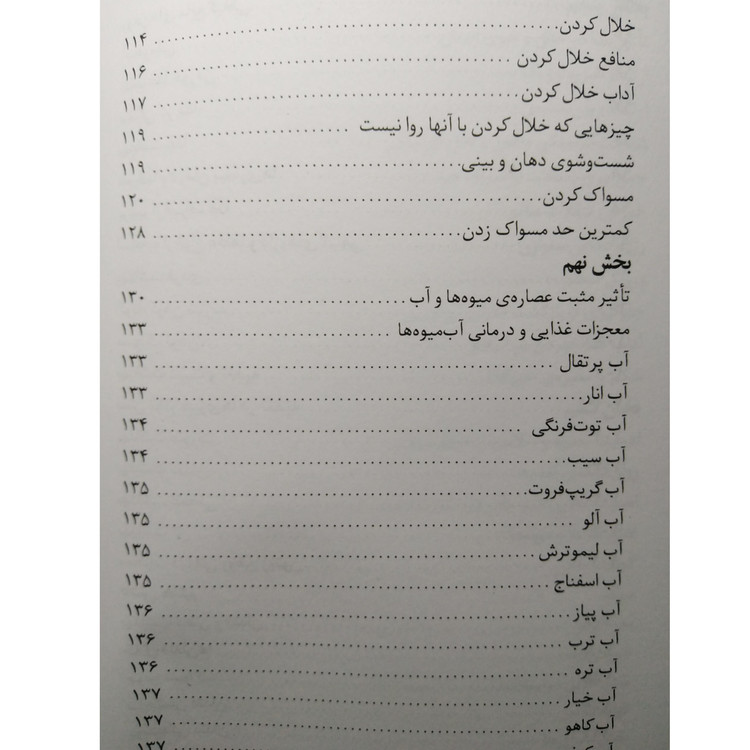 خلال کردن ........ ۱۱۴
منافع خلال کردن ........ ۱۱۶
آداب خلال کردن ........ ۱۱۷
چیزهایی که خلال کردن با آنها روا نیست ........ ۱۱۹
شست‌وشوی دهان و بینی ........ ۱۱۹
مسواک کردن ........ ۱۲۰
کمترین حد مسواک زدن ........ ۱۲۸
بخش نهم
تأثیر مثبت عصاره‌ی میوه‌ها و آب ........ ۱۳۰
معجزات غذایی و درمانی آب‌میوه‌ها ........ ۱۳۳
آب پرتقال ........ ۱۳۳
آب انار ........ ۱۳۳
آب توت‌فرنگی ........ ۱۳۴
آب سیب ........ ۱۳۴
آب گریپ‌فروت ........ ۱۳۵
آب آلو ........ ۱۳۵
آب لیموترش ........ ۱۳۵
آب اسفناج ........ ۱۳۵
آب پیاز ........ ۱۳۶
آب ترب ........ ۱۳۶
آب تره ........ ۱۳۶
آب خیار ........ ۱۳۷
آب کاهو ........ ۱۳۷
آب ........ ۱۳۷